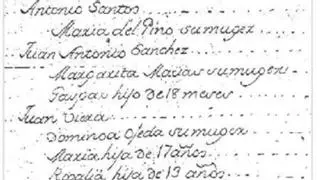 Antonio Santos
Maria del Pino su muger
Juan Antonio Sanchez
Margarita Macias su muger
Gaspar hijo de 18 meses
Juan Viera
Dominga Ojeda su muger
Maria hija de 17 años
Rosalia hija de 13 años